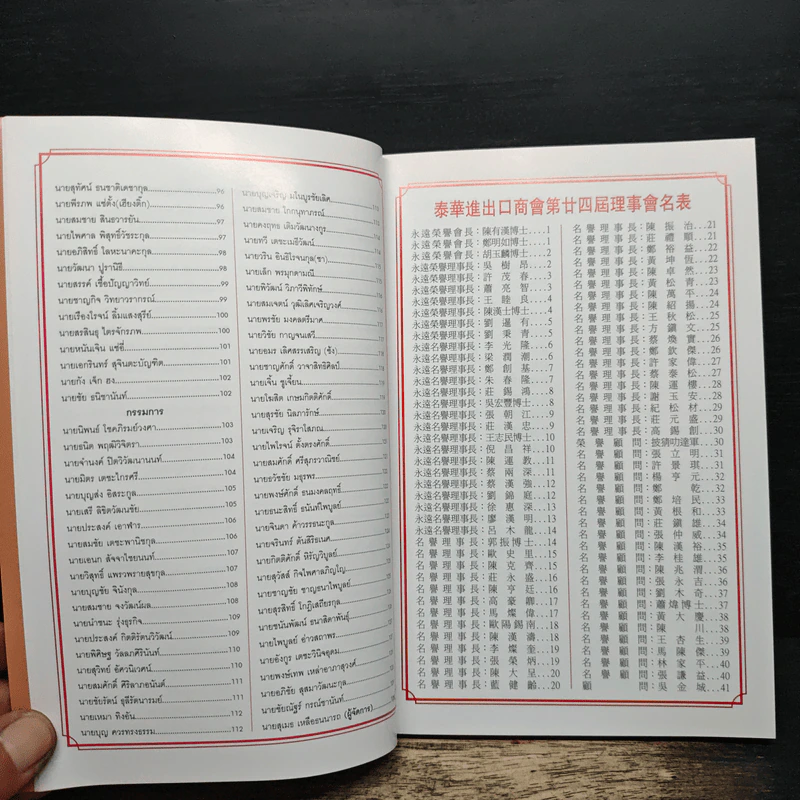 นายสุทัศน์ ธนชาติเดชากุล 96
นายพีรภพ แซ่ตั้ง(เฮียงติ๊ก) 96
นายสมชาย สินธวารยัน 97
นายไพศาล พิสุทธิ์วัชระกุล 97
นายอภิสิทธิ์ โลหะนาคะกุล 98
นายวัฒนา ปูรานิธี 98
นายสรรค์ เชื้อปัญญาวิทย์ 99
นายชาญกิจ วิทยาวราภรณ์ 99
นายเรืองโรจน์ ลิ้มแสงสุรีย์ 100
นายสรสินธุ ไตรจักรภพ 100
นายหนันเจิน แซ่ยี่ 101
นายเอกรินทร์ สุจินตะบัณฑิต 101
นายกัง เจ็ก ฮง 102
นายชัย ธนิชานันท์ 102
กรรมการ
นายนิพนธ์ โชคภิรมย์วงศา 103
นายธนิต พฤฒิวิจิตรา 103
นายจำนงค์ ปิตวิวัฒนานนท์ 104
นายมิตร เตชะไกรศรี 104
นายบุญส่ง อิสระกูล 105
นายเสรี ลิขิตวัฒนชัย 105
นายประสงค์ เอาฬาร 106
นายสมชัย เตชะพานิชกุล 106
นายเอนก สัจจาไชยนนท์ 107
นายวิสุทธิ์ แพรวพรายสุขกุล 107
นายบุญชัย จินังกุล 108
นายสมชาย จงวัฒน์ผล 108
นายนำชนะ รุ่งธุรกิจ 109
นายประสงค์ กิตติรัตนวิวัฒน์ 109
นายพิศิษฐ วัลลภศิรินันท์ 110
นายสุวิทย์ อัศวนิเวศน์ 110
นายสมศักดิ์ ศิริลาภอนันต์ 111
นายชัยรัตน์ ธุลีรัตนารมย์ 111
นายเหมา ทิงอัน 112
นายบุญ ควรทรงธรรม 112
นายบุญเจริญ มโนบูรชัยเลิศ
นายสมชาย โภกนุทาภรณ์
นายคงฤทธ เติมวัฒนางกูร
นายทวี เตชะเมธีวัฒน์
นายวริน อินธิโรจนกุล(ชา)
นายเล็ก พรมุกดามณี
นายพิวัฒน์ วิภาวีพิทักษ์
นายสมเจตน์ วุฒิเลิศเจริญวงศ์
นายพรชัย มงคลตรีมาค
นายวิชัย กาญจนเสวี
นายอมร เลิศสรรเสริญ (ซัง)
นายชาญศักดิ์ วาจาสิทธิศิลป์
นายเจิ้น ชูเจี้ยน
นายโฆสิต เกษมกิตติศักดิ์
นายสุรชัย นิลภารักษ์
นายเจริญ รุจิราโสภณ
นายไพโรจน์ ตั้งตรงศักดิ์
นายสมศักดิ์ ศรีสุภรวาณิชย์
นายธวัชชัย มธุรพร
นายพงษ์ศักดิ์ ธนมงคลฤทธิ์
นายธนะสิทธิ์ ธนันท์ไพบูลย์
นายจินดา ค้าวรรธนะกุล
นายจรินทร์ ตันสิริธเนศ
นายกิตติศักดิ์ หิรัญวิบูลย์
นายสุวัสส์ กิจไพศาลภิญโญ
นายชัยชาญ ชาญธนาไพบูลย์
นายสุรสิทธิ์ ไกฎิเสถียรกุล
นายชนันพัฒน์ ธนาสิดาพันธุ์
นายไพบูลย์ อ่าวสถาพร
นายอังกูร เตชะวินิจอุดม
นายพงษ์เทพ เหล่าอาภาสุวงศ์
นายอภิชัย สุสมาวัฒนะกุล
นายชัยณัฐร์ กรณ์ชานันท์
นายสุเมธ เหลือธนนารถ (ผู้จัดการ)
泰華進出口商會第廿四屆理事會名表
永遠榮譽會長：陳有漢博士 1
永遠榮譽會長：鄭明如博士 1
永遠榮譽會長：胡玉麟博士 2
永遠榮譽理事長：吳樹昂 2
永遠榮譽理事長：許茂春 3
永遠榮譽理事長：蕭亮智 3
永遠榮譽理事長：王睦良 4
永遠榮譽理事長：陳漢士博士 4
永遠榮譽理事長：劉暹有 5
永遠榮譽理事長：劉秉青 5
永遠榮譽理事長：李光隆 6
永遠榮譽理事長：梁潤潮 6
永遠榮譽理事長：鄭創基 7
永遠榮譽理事長：朱春隆 7
永遠榮譽理事長：莊錫鴻 8
永遠榮譽理事長：吳宏豐博士 8
永遠榮譽理事長：張朝江 9
永遠榮譽理事長：莊漢忠 9
永遠榮譽理事長：王志民博士 10
永遠榮譽理事長：倪昌祥 10
永遠榮譽理事長：陳運教 10
永遠榮譽理事長：蔡兩深 11
永遠榮譽理事長：蔡漢強 12
永遠榮譽理事長：劉錦庭 12
永遠榮譽理事長：徐惠深 13
永遠榮譽理事長：廖漢明 13
永遠榮譽理事長：呂木龍 14
名譽理事長：郭振博士 14
名譽理事長：歐史里 15
名譽理事長：陳克齊 15
名譽理事長：莊永盛 16
名譽理事長：陳亨廷 16
名譽理事長：高豪卿 17
名譽理事長：馬燦偉 17
名譽理事長：歐陽錫南 18
名譽理事長：陳漢濤 18
名譽理事長：李燦奎 19
名譽理事長：張榮炳 19
名譽理事長：陳大呈 20
名譽理事長：藍健齡 20
名譽理事長：陳振治 21
名譽理事長：莊禮順 21
名譽理事長：鄭裕益 22
名譽理事長：黃坤恆 22
名譽理事長：陳卓然 23
名譽理事長：黃松青 23
名譽理事長：陳萬平 24
名譽理事長：陳紹揚 24
名譽理事長：王秋松 25
名譽理事長：方鎭文 25
名譽理事長：蔡燒實 26
名譽理事長：鄭欽傑 26
名譽理事長：許家偉 27
名譽理事長：蔡泰松 27
名譽理事長：陳運樓 28
名譽理事長：謝玉安 28
名譽理事長：紀松材 29
名譽理事長：莊元盛 29
名譽理事長：高錫創 30
榮譽顧問：披猜叻達軍 30
名譽顧問：張立明 31
名譽顧問：許景琪 31
名譽顧問：楊亨元 32
名譽顧問：鄭乾 32
名譽顧問：鄭培民 33
名譽顧問：黃根和 33
名譽顧問：莊鎭雄 34
名譽顧問：張仲威 34
名譽顧問：陳漢裕 35
名譽顧問：李桂雄 35
名譽顧問：陳兆渭 36
名譽顧問：張永吉 36
名譽顧問：劉木奇 37
名譽顧問：蕭煒博士 37
名譽顧問：黃大慶 38
名譽顧問：陳川 38
名譽顧問：王杏生 39
名譽顧問：馬陳傑 39
名譽顧問：林家平 40
名譽顧問：張謙益 40
顧問：吳金城 41